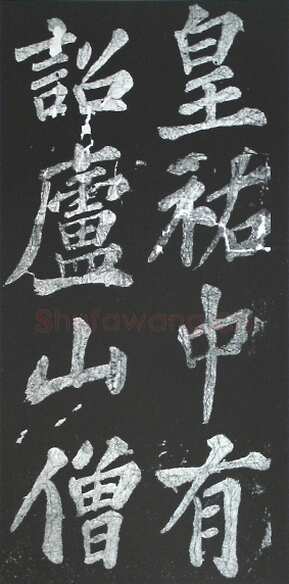 皇祐中有
詔廬山僧
Shufawang.cn